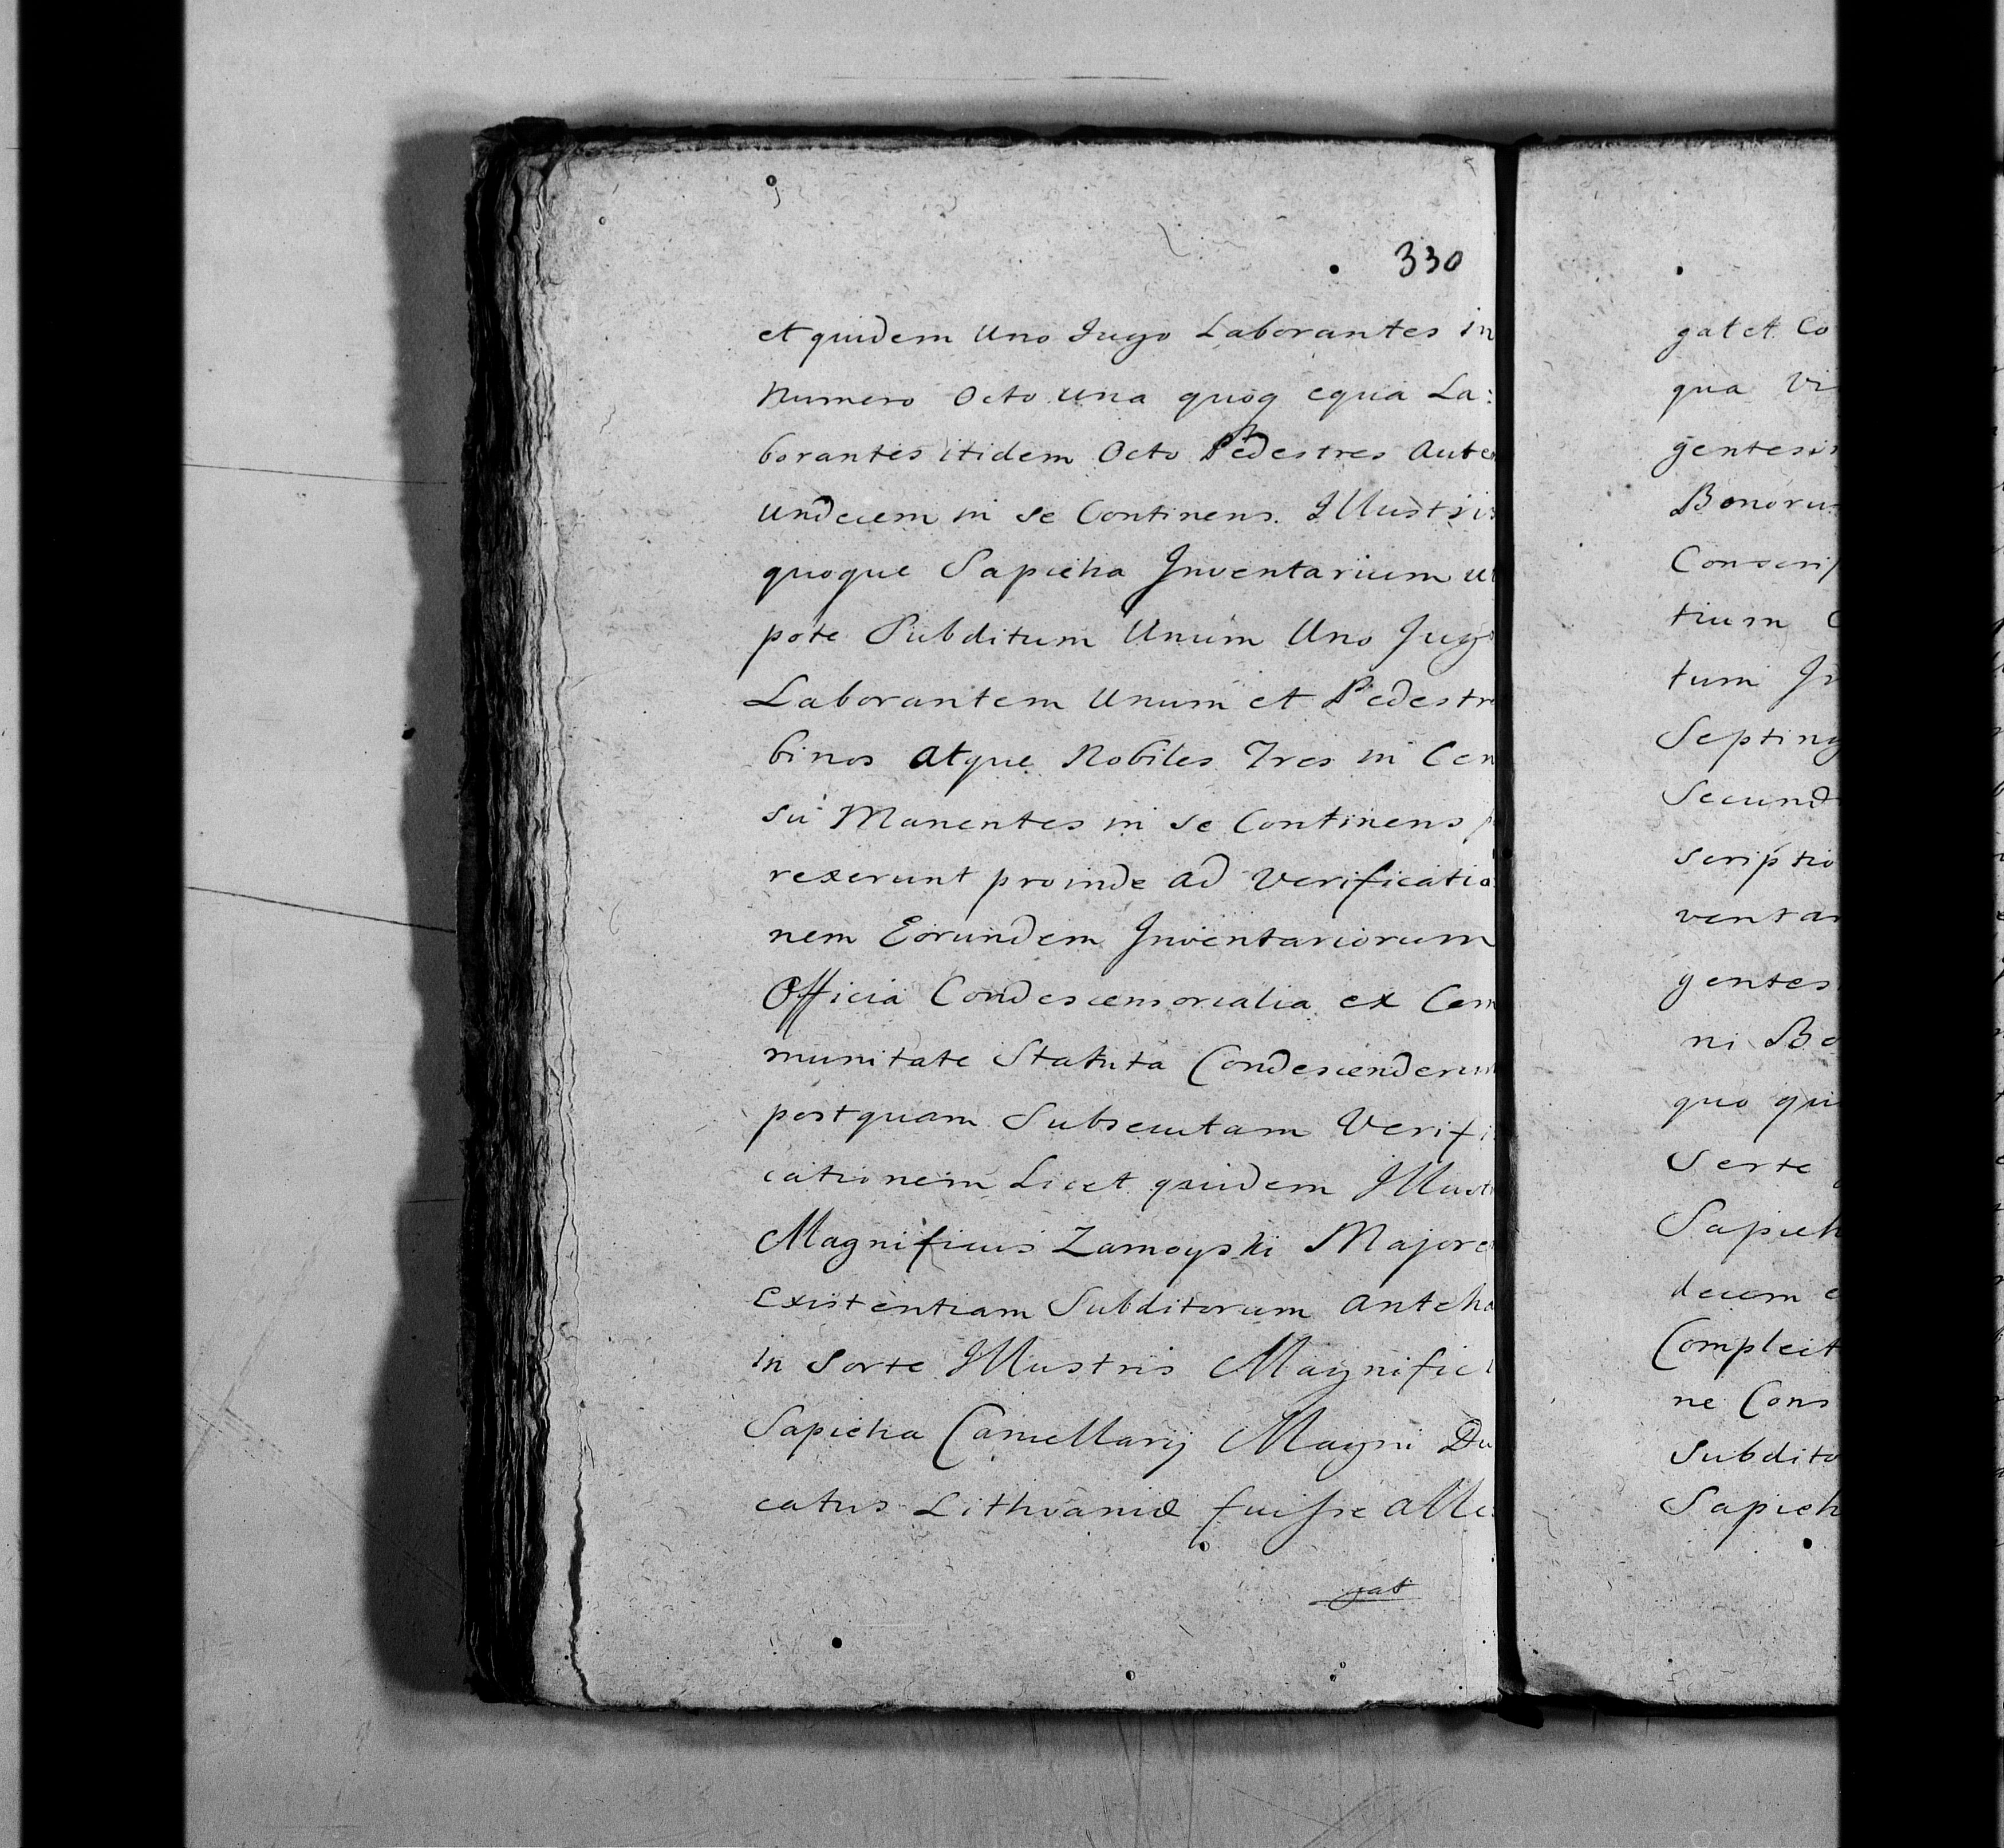 330
et quidem Uno Jugo Laborantes in
Numero Octo una quoq equa La:
borantes itidem Octo Pedestres Aute
undecem in se Continens. Illustris
quoque Sapieha Inventarium ut
pote Subditum Unum Uno Jugo
Laborantem Unum et Pedestre
binos Atque Nobiles Tres in Cen
su Manentes in se Continens
rexerunt proinde ad Verificatio
nem Eorundem Inventariorum
Officia Condescensorialia ex Com
munitate Statuta Condescenderun
postquam Subsecutam Verifi
cationem Licet quidem Illust
Magnificus Zamoyski Majore
Existentiam Subditorum anteha
in Sorte Illustris Magnifici
Sapieha Cancellarij Magni Du
catus Lithvaniæ fuisse Alle
gat
gat et Co
qua Vi
gentesi
Bonoru
Conscrip
tium
tum In
Septing
Secund
scriptio
ventar
gentes
ni Bo
quo qui
Serte
Sapieh
decem e
Complect
ne Cons
Subdito
Sapieh